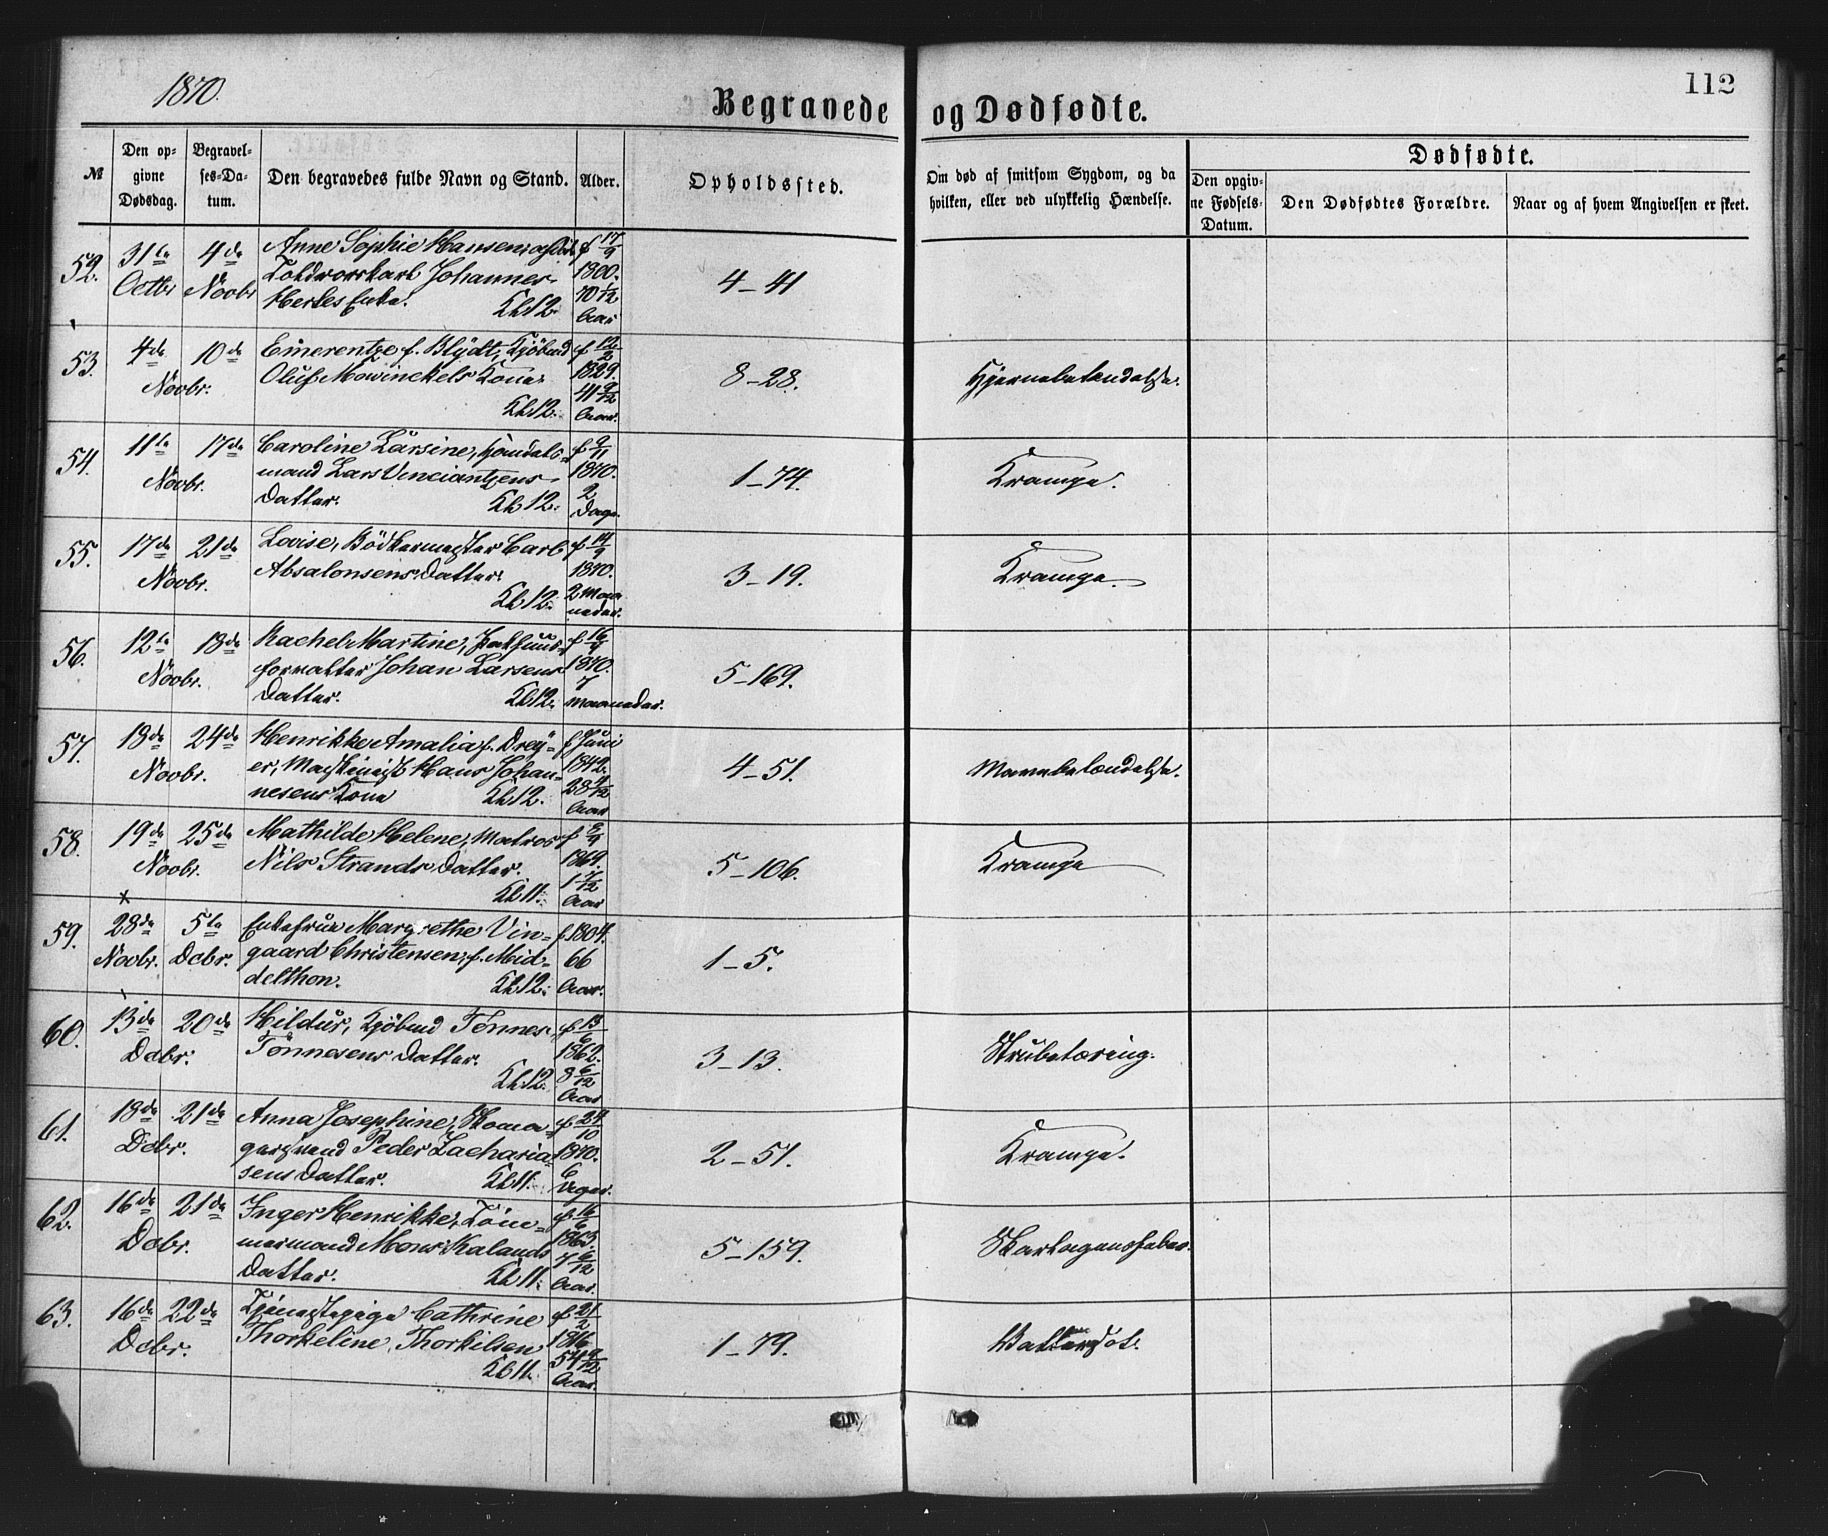 1870.
112
Begravede og Dødfødte.
№
Den opgivne Dødsdag.
Begravelses-Datum.
Den begravedes fulde Navn og Stand.
Alder.
Opholdssted.
Om død af smitsom Sygdom, og da hvilken, eller ved ulykkelig Hændelse.
Dødfødte.
Den opgivne Fødsels-Datum.
Den Dødfødtes Forældre.
Naar og af hvem Angivelsen er skeet.
52. 31te Octbr 4de Novbr
Anne Sophie Hansen,
Johannes
Herkes Enke. Kl 12.
f 17/9 1800. 70 1/12 Aar
4-41
53. 4de 10de Novbr.
Emerentze f. Blydt, Kjøbmd
Oluf Mowinckels Kone.
Kl 12.
f 12/2 1829. 41 9/12 Aar.
8-28.
Hjernebetændelse.
54. 11te 17de Novbr.
Caroline Larsine, Handels-
mand Lars Vinciantzens
Datter. Kl 12.
f 9/11 1870. 2 Dage.
1-74.
Krampe.
55. 17de 21de Novbr.
Lovise, Bødkermester Carl
Absalonsens Datter.
Kl 12.
f 14/9 1870. 2 Maaneder.
3-19.
Krampe.
56. 12te 18de Novbr.
Rachel Martine,
forvalter Johan Larsens
Datter. Kl 12.
f 16/4 1870. 7 Maaneder.
5-169.
57. 18de 24de Novbr.
Henrikke Amalia f. Drey-
er, Maskinist Hans Johan-
nesens Kone Kl 12.
f Juni 1842. 28 4/12 Aar
4-51.
Mavebetændelse.
58. 19de 25de Novbr.
Mathilde Helene, Matros
Nils Strands Datter.
Kl 11.
1869. 1 Aar
5-106.
Krampe
59. 28de Novbr. 5te Dcbr.
Enkefrue Margrethe Vin-
gaard Christensen, f. Mid-
delthon. Kl 12.
f 1804. 66 Aar.
1-5.
60. 13de 20de Dcbr.
Hildur, Kjøbmd Tønnes
Tønnesens Datter.
Kl 12.
f 13/6 1862. 8 6/12 Aar
3-13.
Strubetæring.
61. 18de 21de Dcbr.
Anna Josephine, Skoma-
gersvend Peder Zacharia-
sens Datter. Kl 11.
f 24/10 1870. 6 Uger.
2-51.
Krampe.
62. 16de 21de Dcbr.
Inger Henrikke, Tøm-
mermand Mons Kalands
Datter. Kl 11.
f 16/6 1863. 7 6/12 Aar.
5-159.
Skarlagensfeber.
63. 16de 22de Dcbr.
Tjenestepige Cathrine
Thorkeline Thorkilsen
Kl 11.
f 21/2 1816 54 9/12 Aar.
1-79.
Vattersot.